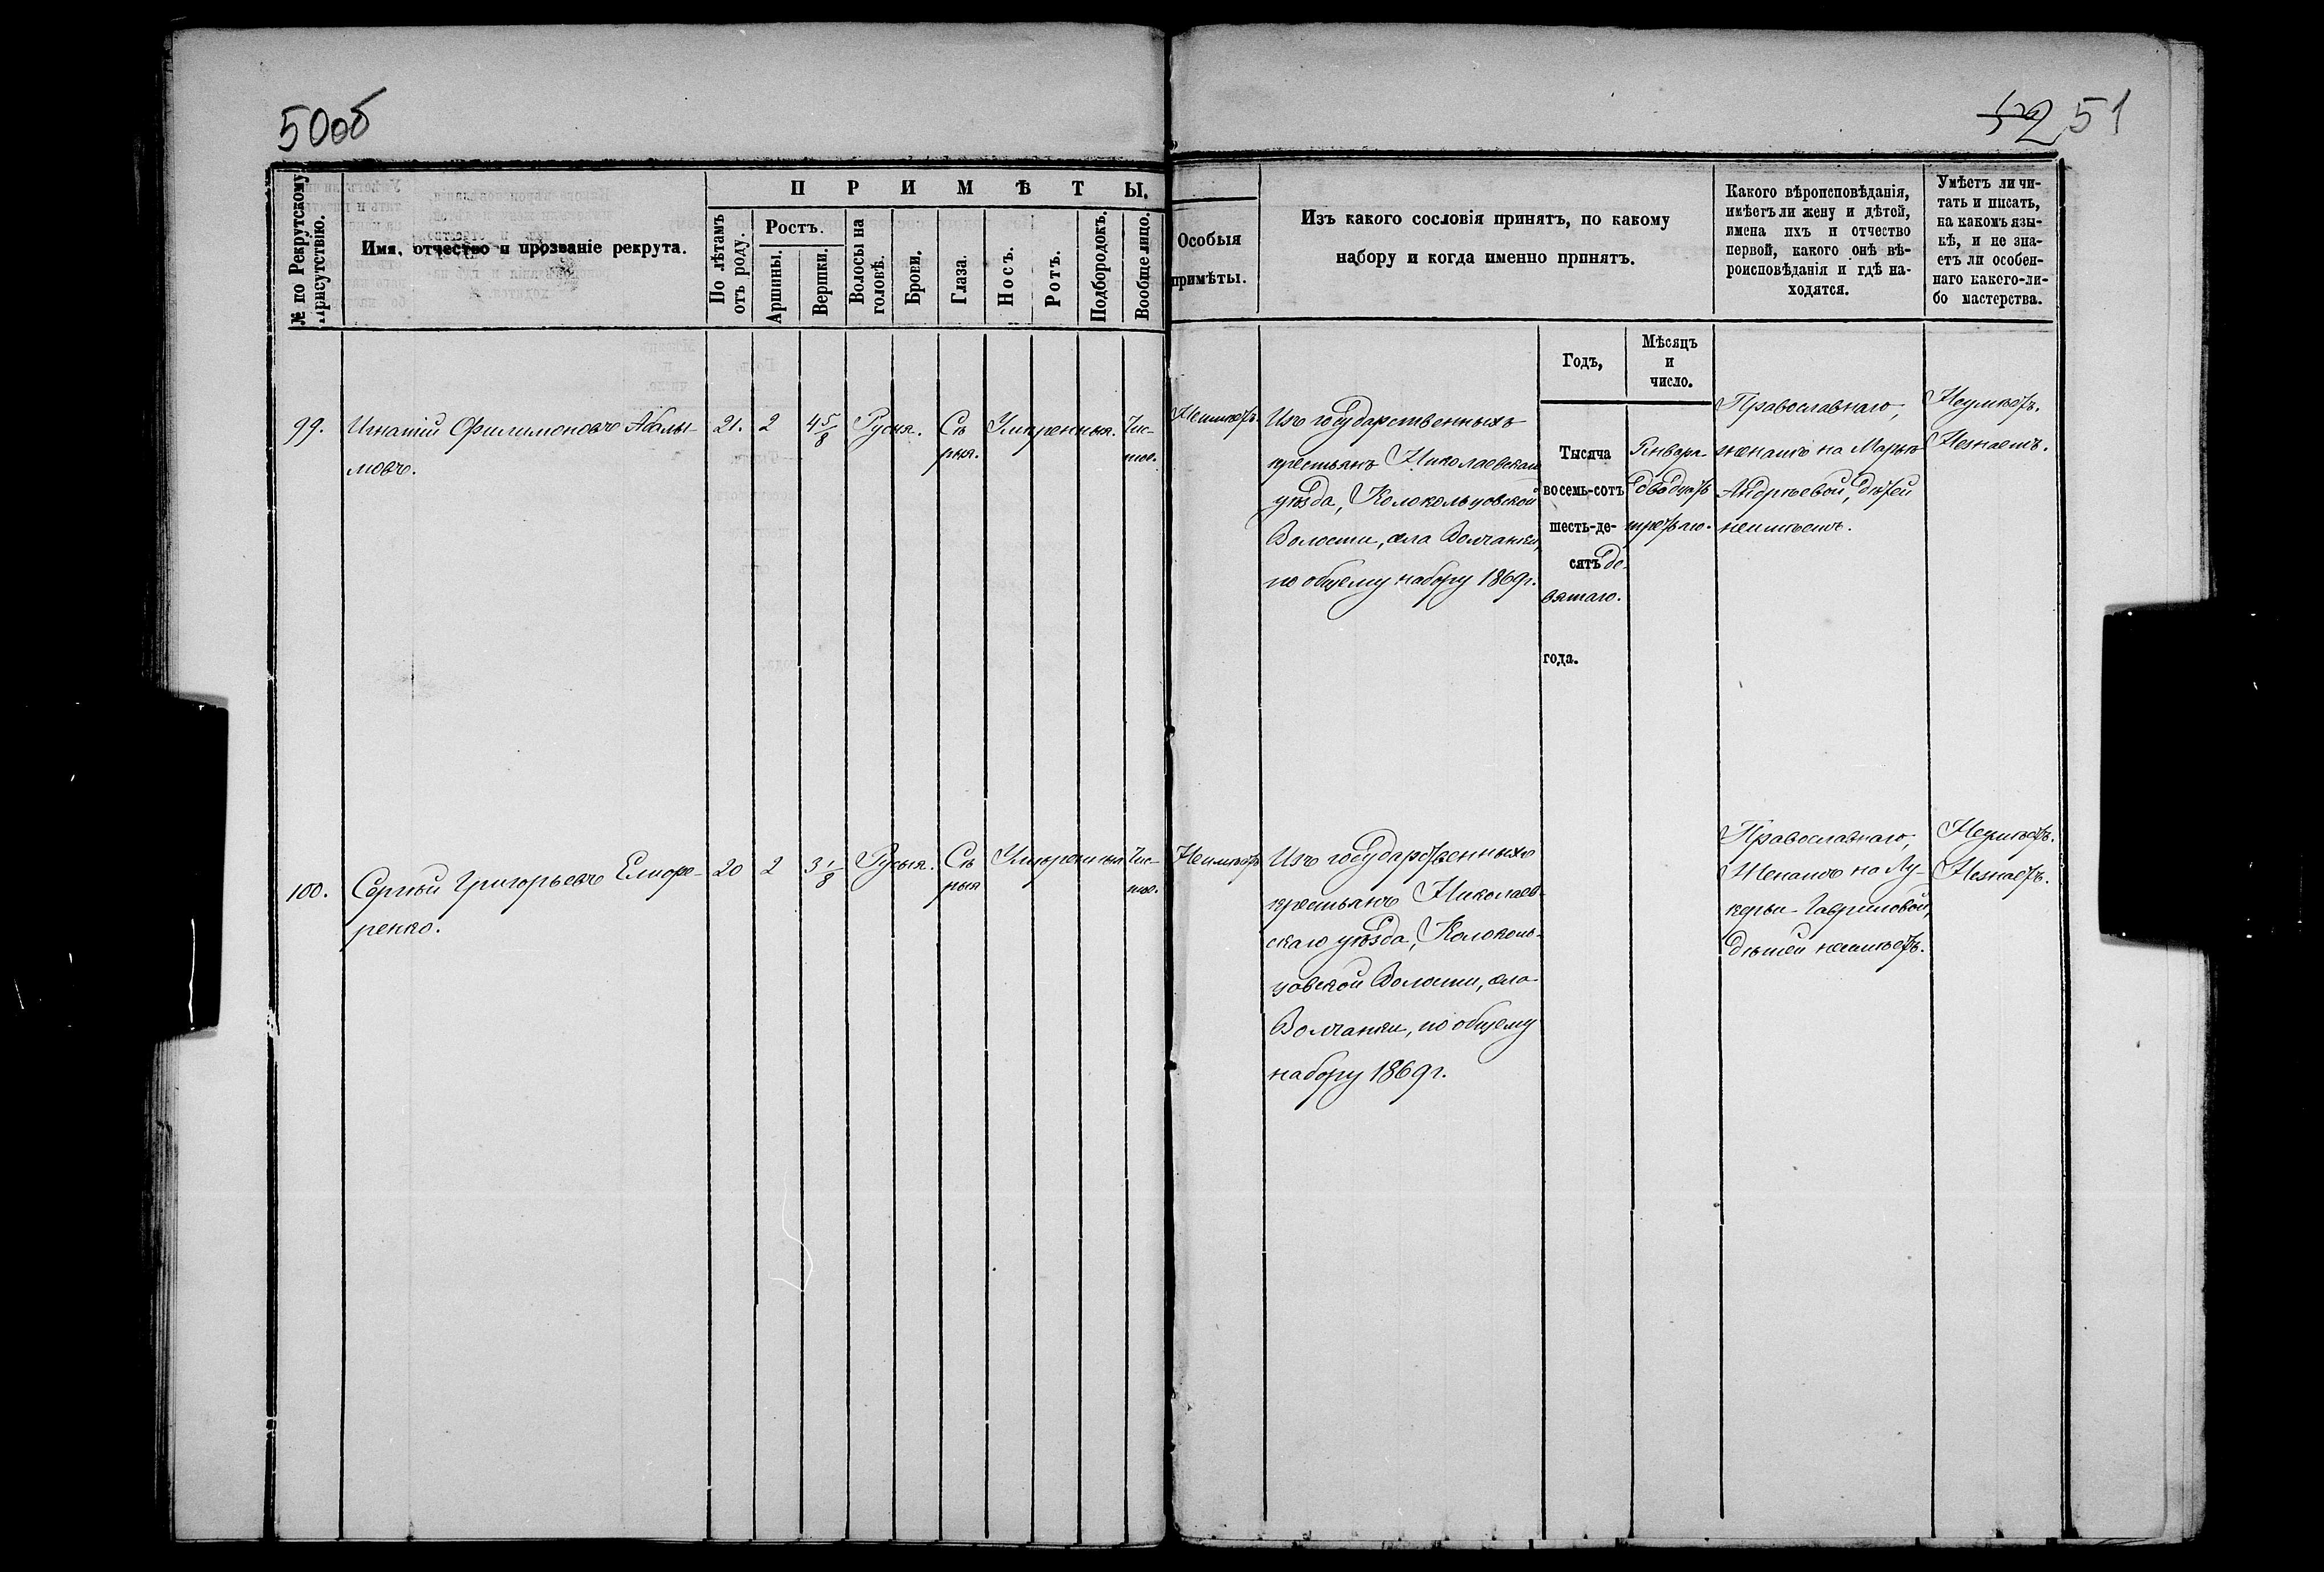 50об
52 51
№ по Рекрутскому присутствію.
Имя, отчество и прозваніе рекрута.
ПРИМѢТЫ.
По лѣтамъ отъ роду.
Ростъ.
Аршины.
Вершки.
Волосы на головѣ.
Брови.
Глаза.
Носъ.
Ротъ.
Подбородокъ.
Вообще лицо.
Особыя
примѣты.
Изъ какого сословія принятъ, по какому
набору и когда именно принятъ.
Какого вѣроисповѣданія,
имѣетъ ли жену и дѣтей,
имена ихъ и отчество
первой, какого онѣ вѣ-
роисповѣданія и гдѣ на-
ходятся.
Умѣетъ ли чи-
тать и писать,
на какомъ язы-
кѣ, и не зна-
етъ ли особен-
наго какого-ли-
бо мастерства.
Годъ,
Мѣсяцъ
и
число.
99.
Игнатій Филимоновъ Абалы-
мовъ.
21.
2
4 5/8
Русыя.
Сѣ
рыя.
Умѣренныя.
Чис-
тое.
Неимѣетъ.
Изъ государственныхъ
крестьянъ Николаевскаго
уѣзда, Колокольцовской
Волости, села Волчанки,
по общему набору 1869 г.
Тысяча
восемь-сотъ
шесть-де-
сятъ де-
вятаго.
года.
Января
двадцать
третьяго.
Православнаго,
женатъ на Марьѣ
Андреевой, дѣтей
неимѣетъ.
Неумѣетъ.
Незнаетъ.
100.
Сергѣй Григорьевъ Елифе-
ренко.
20
2
3 1/8
Русыя.
Сѣ
рыя
Умѣренныя
Чис-
тое.
Неимѣетъ
Изъ государственныхъ
крестьянъ Николаев-
скаго уѣзда, Колоколь-
цовской Волости, села
Волчанки, по общему
набору 1869 г.
Православнаго,
Женатъ на Лу-
керьи Гавриловой,
дѣтей неимѣетъ.
Неумѣетъ.
Незнаетъ.